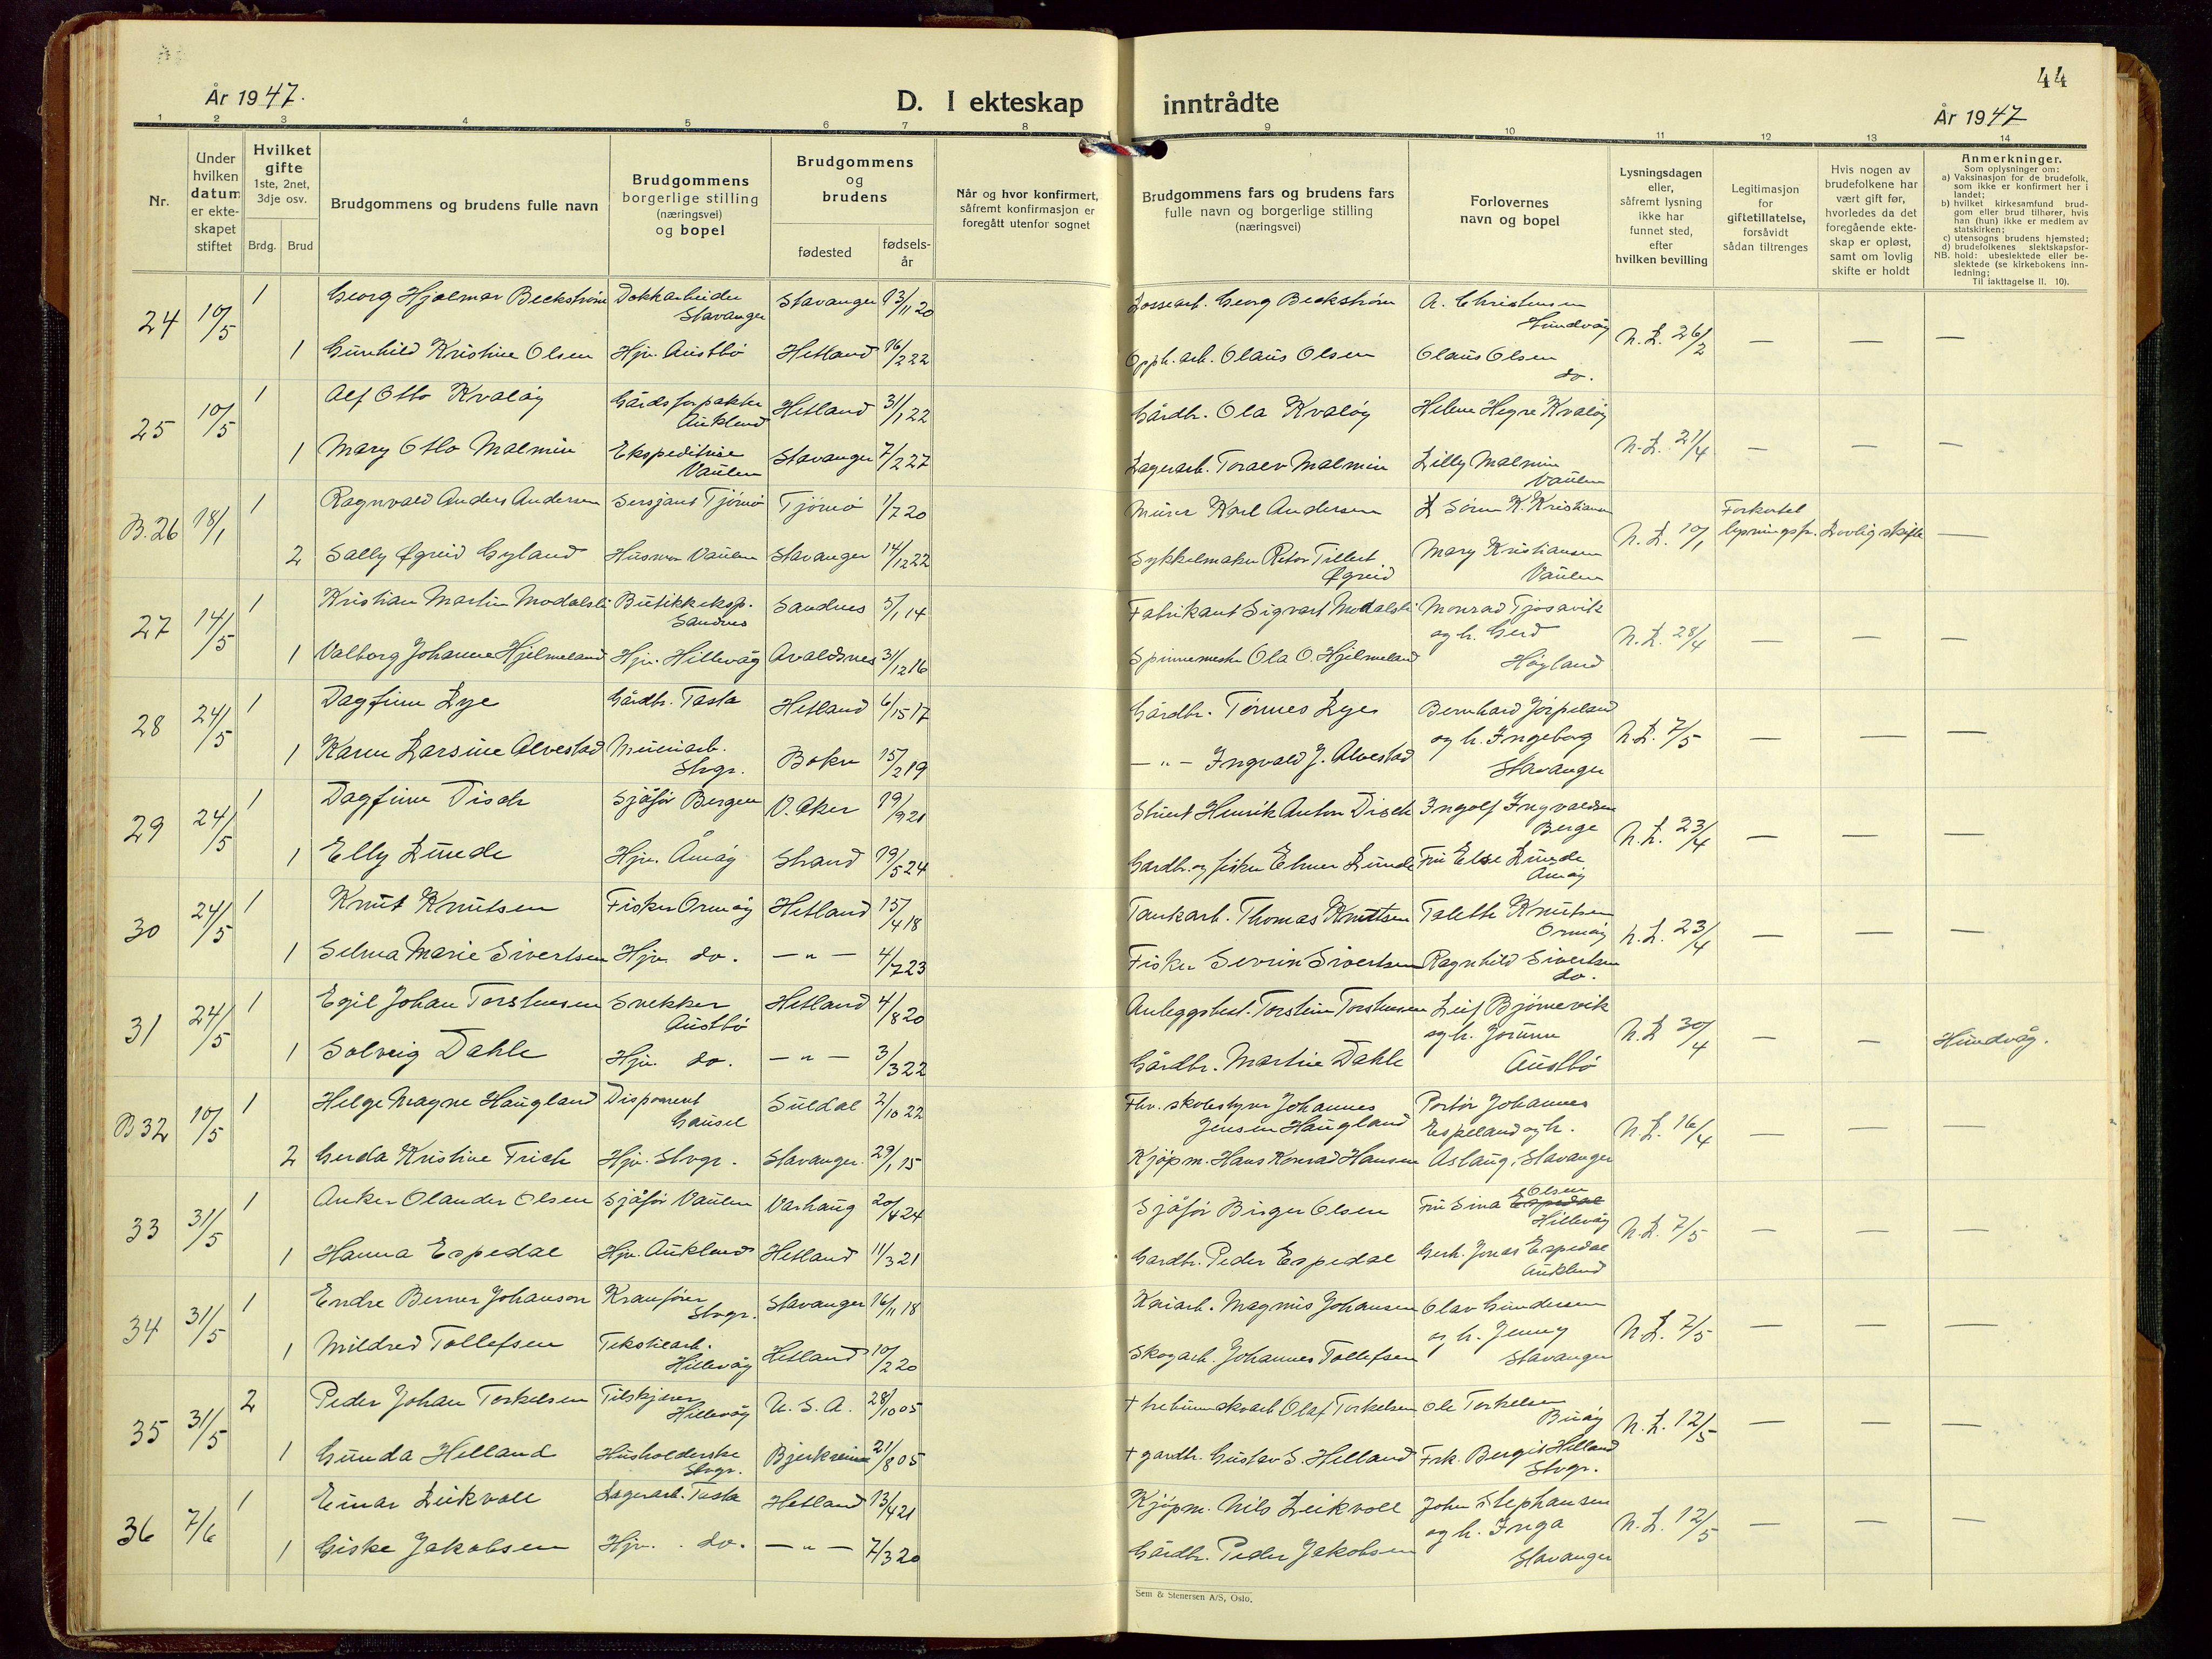 År 1947.
D. I ekteskap inntrådte
44
År 1947
1 2 3 4 5 6 7 8 9 10 11 12 13 14
Nr.
Under hvilken datum er ekteskapet stiftet
Hvilket gifte 1ste, 2net, 3dje osv.
Brdg. Brud
Brudgommens og brudens fulle navn
Brudgommens borgerlige stilling (næringsvei) og bopel
Brudgommens og brudens
fødested
fødselsår
Når og hvor konfirmert, såfremt konfirmasjon er foregått utenfor sognet
Brudgommens fars og brudens fars fulle navn og borgerlige stilling (næringsvei)
Forlovernes navn og bopel
Lysningsdagen eller, såfremt lysning ikke har funnet sted, efter hvilken bevilling
Legitimasjon for giftetillatelse, forsåvidt sådan tiltrenges
Hvis nogen av brudefolkene har vært gift før, hvorledes da det foregående ekteskap er opløst, samt om lovlig skifte er holdt
Anmerkninger.
Som oplysninger om:
a) Vaksinasjon for de brudefolk, som ikke er konfirmert her i landet;
b) hvilket kirkesamfund brudgom eller brud tilhører, hvis han (hun) ikke er medlem av statskirken;
c) utensogns brudens hjemsted;
d) brudefolkenes slektskapsforhold: ubeslektede eller beslektede (se kirkebokens innledning;
NB.
Til iakttagelse II. 10).
24 10/5 1 Georg Hjalmar Beckstrøm Dokkarbeider Stavanger Stavanger 13/11 20 Lossearb. Georg Beckstrøm A. Christensen Hundvåg N.L. 26/2 — — —
1 Gunhild Kristine Olsen Hjv. Austbø Hetland 16/2 22 Opph. arb. Olaus Olsen Olaus Olsen do.
25 10/5 1 Alf Otto Kvaløy Gårdsforpakter Auklend Hetland 31/1 22 Gårdbr. Ola Kvaløy Helene Hegre Kvaløy N.L. 21/4 — — —
1 Mary Otto Malmin Ekspeditrise Vaulen Stavanger 7/2 27 Lagerarb. Toralv Malmin Lilly Malmin Vaulen
B.26 18/1 1 Ragnvald Anders Andersen Sersjant Tjømø Tjømø 1/7 20 Murer Karl Andersen Søren K. Kristiansen N.L. 10/1 Forkortet lysningsfr. Lovlig skifte —
2 Sally Øgreid Gyland Husmor Vaulen Stavanger 14/12 22 Sykkelmaker Peter Tillert Øgreid Mary Kristiansen Vaulen
27 14/5 1 Kristian Martin Modalsli Butikkeksp. Sandnes Sandnes 5/1 14 Fabrikant Sigvart Modalsli Monrad Tjosavik og h. Gerd Høyland N.L. 28/4 — — —
1 Valborg Johanne Hjelmeland Hjv. Hillevåg Avaldsnes 31/12 16 Spinnemester Ola O. Hjelmeland
28 24/5 1 Dagfinn Lye Gårdbr. Tasta Hetland 6/15 17 Gårdbr. Tønnes Lye Bernhard Jørpeland og h. Ingeborg Stavanger N.L. 7/5 — — —
1 Karen Larsine Alvestad Stvgr. Bokn 15/2 19 — " — Ingvald J. Alvestad
29 24/5 1 Dagfinn Disch Sjåfør Bergen V. Aker 19/9 21 Stuert Henrik Anton Disch Ingolf Ingvaldsen Berge N.L. 23/4 — — —
1 Elly Lunde Hjv. Åmøy Strand 19/5 24 Gardbr. og fisker Elmer Lunde Fru Else Lunde Åmøy
30 24/5 1 Knut Knutsen Fisker Ormøy Hetland 15/4 18 Tankarb. Thomas Knutsen Talette Knutsen Ormøy N.L. 23/4 — — —
1 Selma Marie Sivertsen Hjv. do. — " — 4/7 23 Fisker Severin Sivertsen Ragnhild Sivertsen do.
31 24/5 1 Egil Johan Torstensen Snekker Austbø Hetland 4/8 20 Anleggsbest. Torstein Torstensen Leif Bjørnevik og h. Jorunn Austbø N.L. 30/4 — — Hundvåg.
1 Solveig Dahle Hjv. do. — " — 3/3 22 Gårdbr. Martin Dahle
B 32 10/5 1 Helge Magne Haugland Disponent Gausel Suldal 2/10 22 Fhv. skolestyrer Johannes Jensen Haugland Portør Johannes Espeland og h. Aslaug, Stavanger N.L. 16/4 — — —
2 Gerda Kristine Frich Hjv. Stvgr. Stavanger 29/1 15 Kjøpm. Hans Konrad Hansen
33 31/5 1 Anker Olander Olsen Sjåfør Vaulen Varhaug 20/4 24 Sjåfør Birger Olsen Fru Sina Espedal Olsen Hillevåg N.L. 7/5 — — —
1 Hanna Espedal Hjv. Auklend Hetland 11/3 21 Gardbr. Peder Espedal Jonas Espedal Auklend
34 31/5 1 Endre Berner Johanson Kranfører Stvgr. Stavanger 16/11 18 Kaiarb. Magnus Johansen Olav Gundersen og h. Jenny Stavanger N.L. 7/5 — — —
1 Mildred Tollefsen Tekstilarb. Hillevåg Hetland 10/2 20 Skogarb. Johannes Tollefsen
35 31/5 2 Peder Johan Torkelsen Tilskjærer Hillevåg U.S.A. 28/10 05 † Olaf Torkelsen Ole Torkelsen Buøy N.L. 12/5 — — —
1 Gunda Helland Husholderske Stvgr. Bjerkreim 21/8 05 † gardbr. Gustav S. Helland Frk. Bergit Helland Stvgr.
36 7/6 1 Einar Leikvoll Lagerarb. Tasta Hetland 13/4 21 Kjøpm. Nils Leikvoll John Stephansen og h. Inga Stavanger N.L. 12/5 — — —
1 Giske Jakobsen Hjv. do. — " — 7/3 20 Gårdbr. Peder Jakobsen
Sem & Stenersen A/S, Oslo.